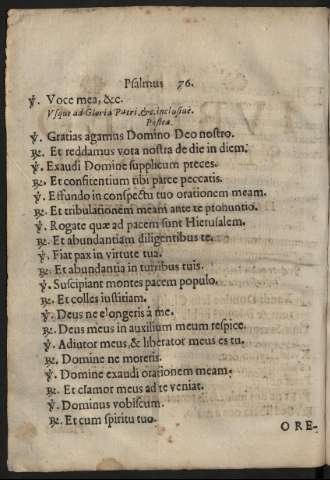 Psalmus 76.
℣. Voce mea, &c.
Vsque ad Gloria Patri, &c. inclusiue.
Postea.
℣. Gratias agamus Domino Deo nostro.
℟. Et reddamus vota nostra de die in diem.
℣. Exaudi Domine supplicum preces.
℟. Et confitentium tibi parce peccatis.
℣. Effundo in conspectu tuo orationem meam.
℟. Et tribulationem meam ante te pronuntio.
℣. Rogate quæ ad pacem sunt Hierusalem.
℟. Et abundantiam diligentibus te.
℣. Fiat pax in virtute tua.
℟. Et abundantia in turribus tuis.
℣. Suscipiant montes pacem populo.
℟. Et colles iustitiam.
℣. Deus ne elongeris à me.
℟. Deus meus in auxilium meum respice.
℣. Adiutor meus, & liberator meus es tu.
℟. Domine ne moreris.
℣. Domine exaudi orationem meam.
℟. Et clamor meus ad te veniat.
℣. Dominus vobiscum.
℟. Et cum spiritu tuo.
ORE-